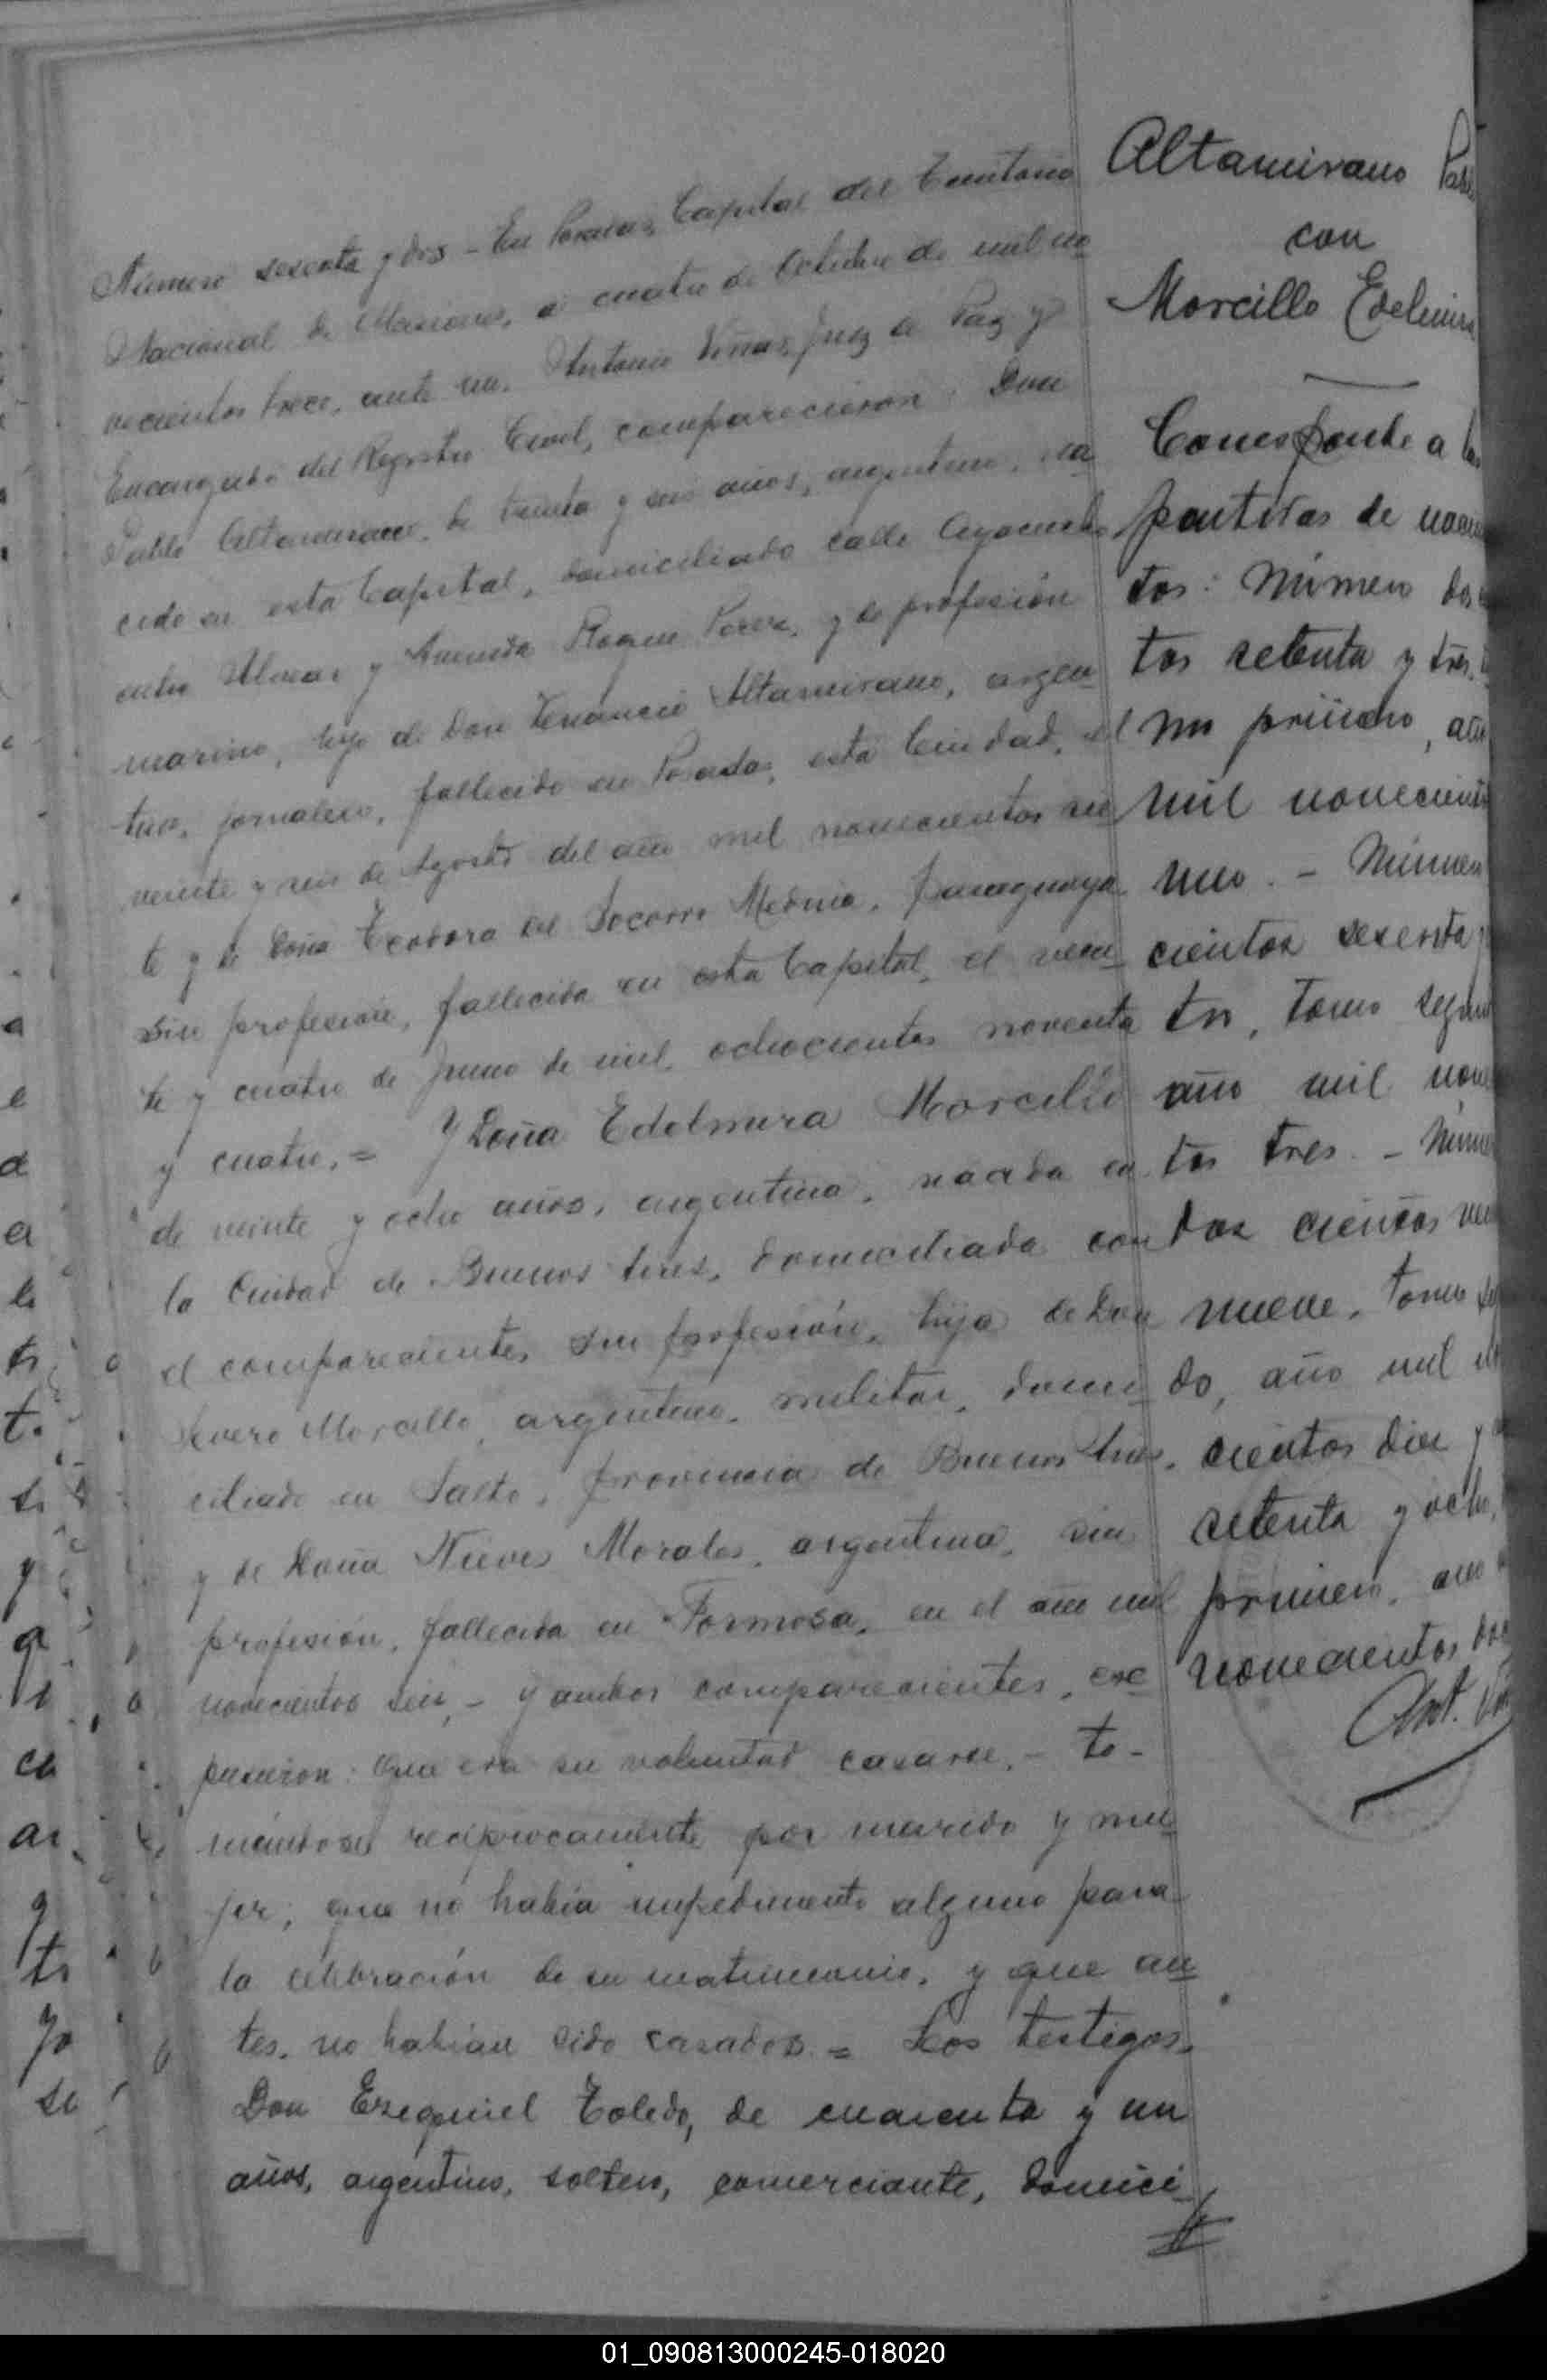 Número sesenta y dos - En Posadas, Capital del Territorio
Nacional de Misiones, a cuatro de Octubre de mil no
vecientos trece, ante mi, Antonio Viñas, Juez de Paz y
Encargado del Registro Civil, comparecieron: Don
Pablo Altamirano, de treinta y seis años, argentino, na
cido en esta Capital, domiciliado calle Ayacucho
entre Alvear y Avenida Roque Perez, y de profesión
marino, hijo de Don Venancio Altamirano, argen
tino, jornalero, fallecido en Posadas, esta Ciudad, el
veinte y seis de Agosto del año mil novecientos sie
te y de Doña Teodora del Socorro Medina, paraguaya
sin profesión, fallecida en esta Capital, el vein
te y cuatro de Junio de mil ochocientos noventa
y cuatro. = Y Doña Edelmira Morcillo
de veinte y ocho años, argentina, nacida en
la Ciudad de Buenos Aires, domiciliada con
el compareciente, sin profesión, hija de Don
Severo Morcillo, argentino, militar, domi
ciliado en Salto, provincia de Buenos Aires,
y de Doña Nieves Morales, argentina, sin
profesión, fallecida en Formosa, en el año mil
novecientos seis, - y ambos comparecientes, ex
pusieron: Que era su voluntad casarse, - to-
mándose reciprocamente por marido y mu
jer; que no había impedimento alguno para
la celebración de su matrimonio, y que an
tes, no habían sido casados. = Los testigos,
Don Ezequiel Toledo, de cuarenta y un
años, argentino, soltero, comerciante, domici
Altamirano
con
Morcillo Edelmira
Corresponde a las
partidas de
tos: Número
tos setenta y tres,
mo primero, año
mil novecientos
uno. - Número
cientos sesenta y
tro, Tomo
año mil
tos tres. -
dos cientos
nueve, Tomo
do, año mil
cientos diez y
setenta y ocho,
primero, año
novecientos
Ant.
01_090813000245-018020